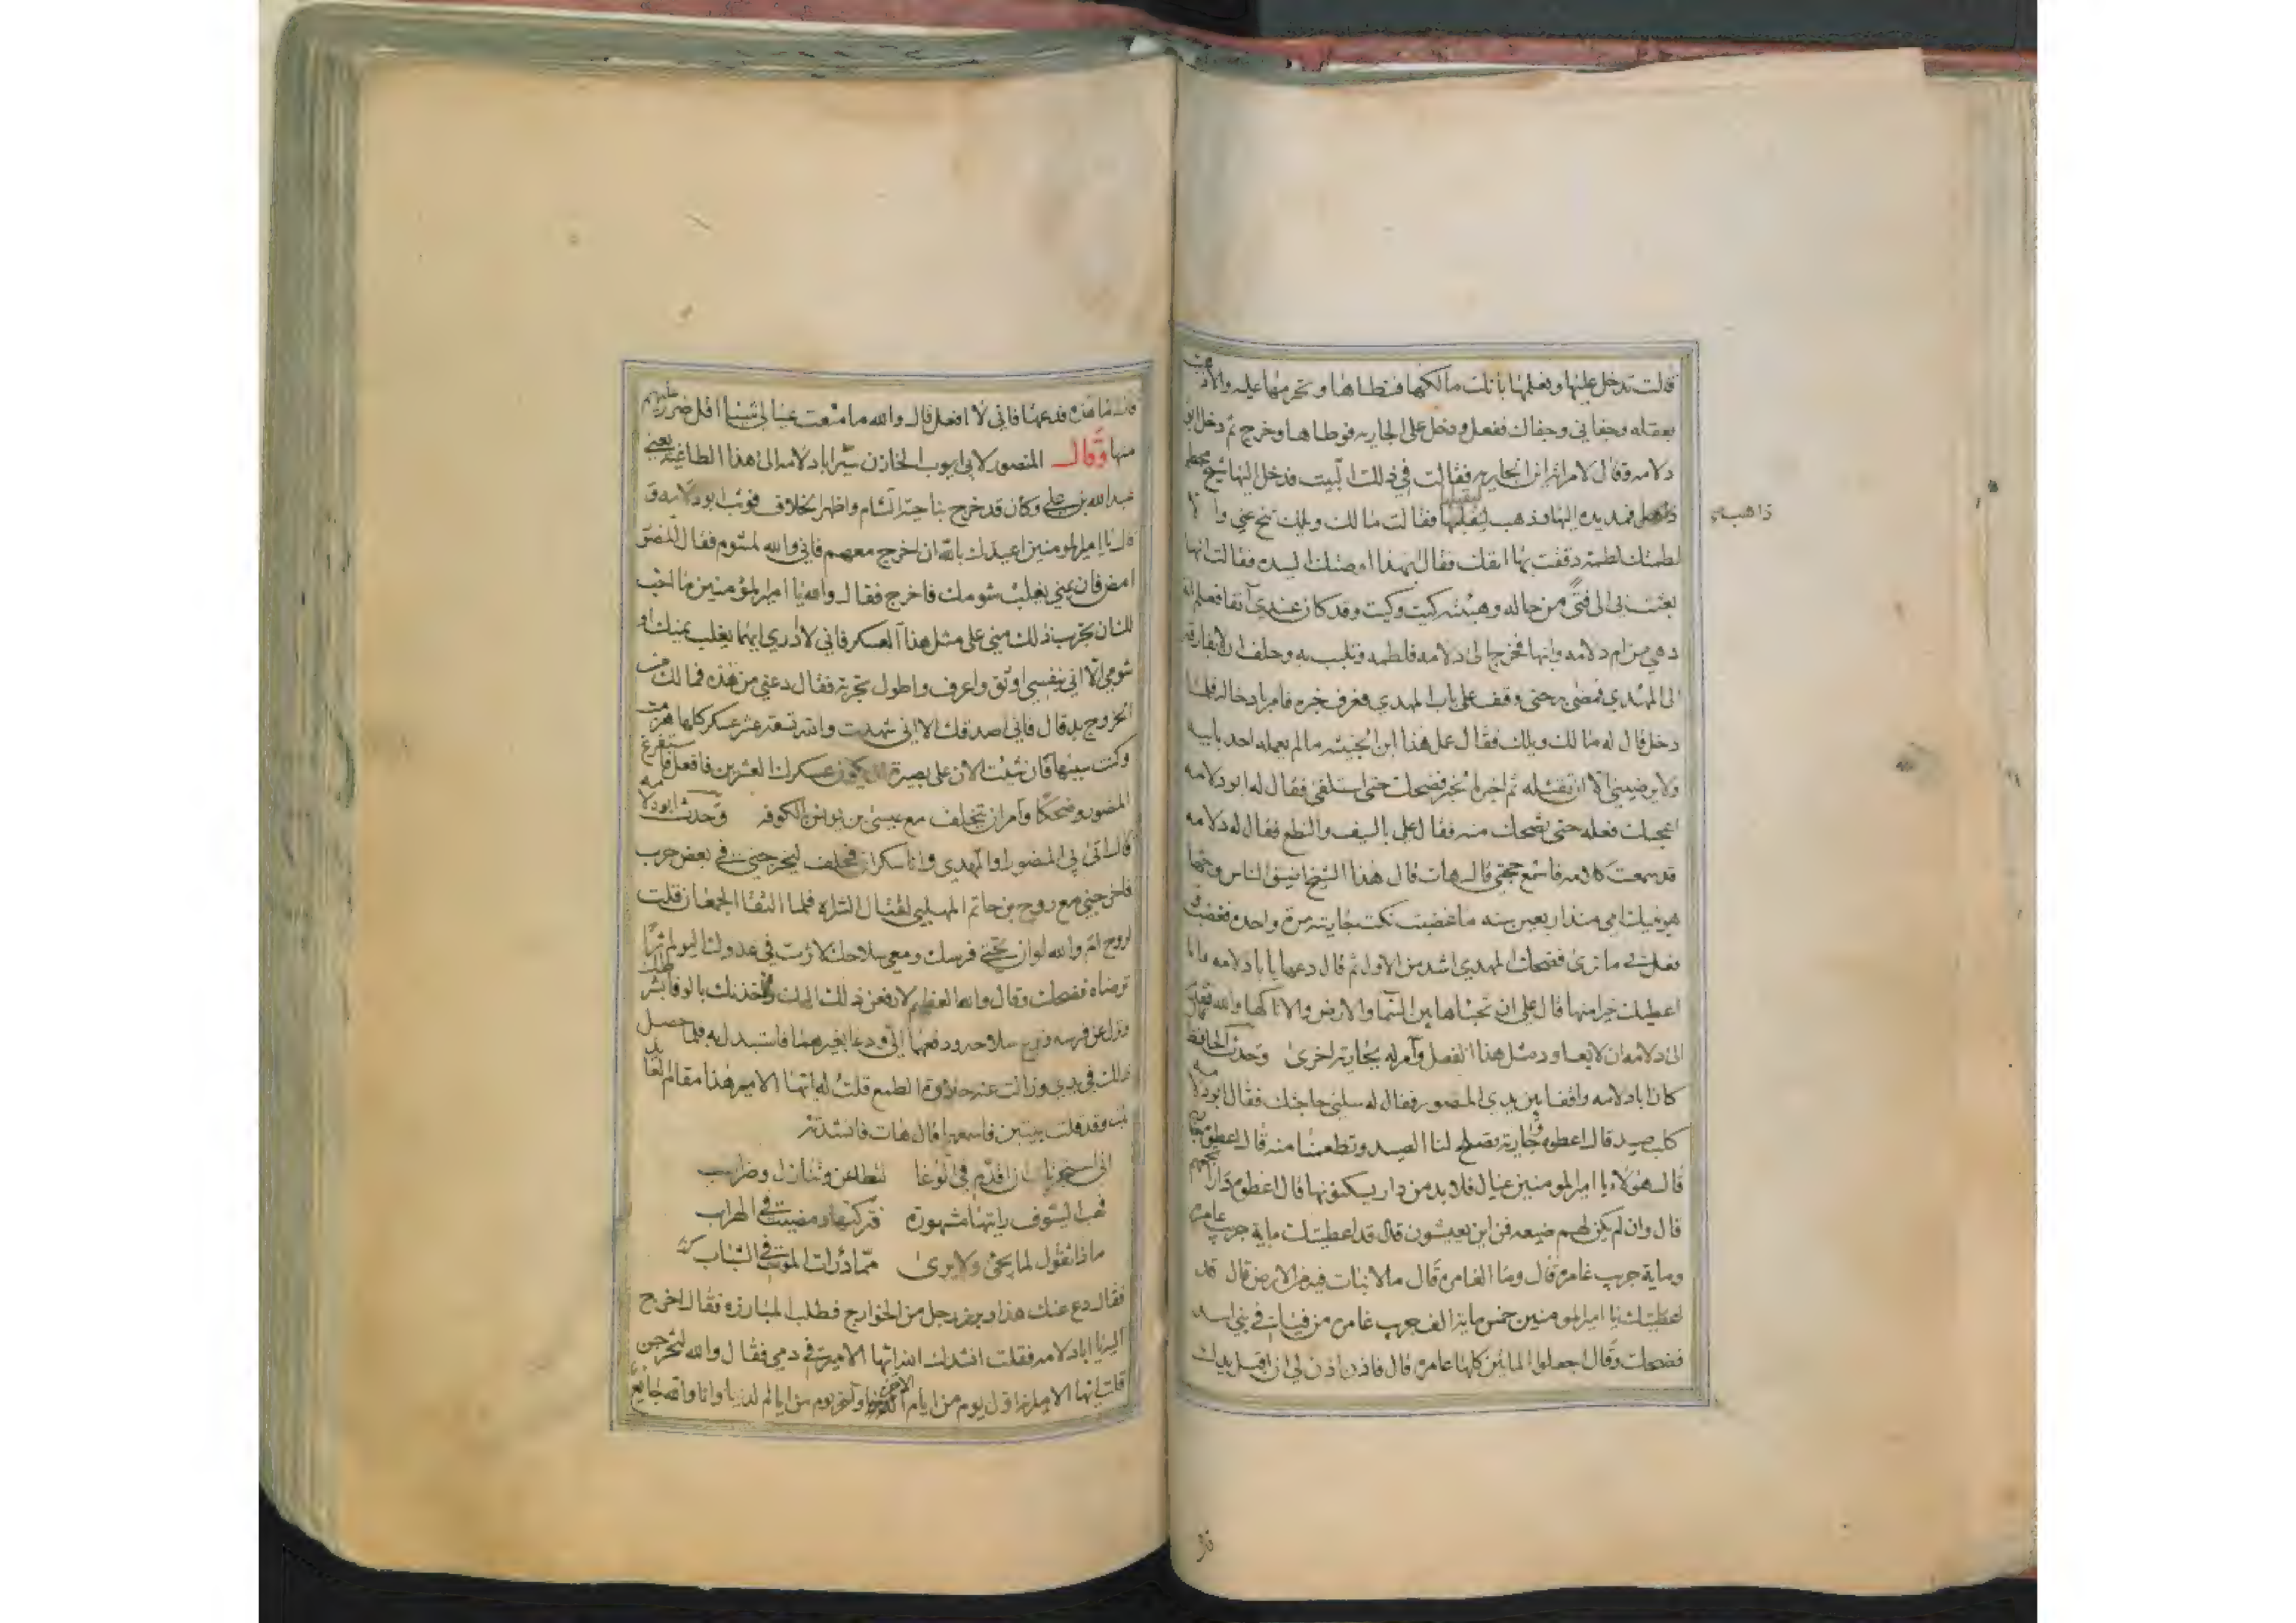 قالت تدخل عليها وتعلمها بانك مالكها فتطاها وتحرمها عليه والا ذهبت
بعقله وجفاني وجفاك ففعل ودخل على الجاريه فوطاها وخرج ثم دخل ابو
دلامه وقال لامراته اين الجاريه فقالت في ذلك البيت فدخل اليها شيخ محطم
ذاهل فمد يده اليها وذهب ليقبلها فقالت مالك ويلك تنح عني والا
ذاهب
لطمتك لطمة دققت بها انفك فقال بهذا اوصتك السيده فقالت انها
بعثت بي الى فتى من حاله وهيئته كيت وكيت وقد كان عندي آنفا فعلم انه
دهي من ام دلامه وابنها فخرج الى دلامه فلطمه وتلبب به وحلف ان لا يفارقه
الى المهدي فمضى به حتى وقف على باب المهدي فعرف خبره فامر بادخاله فلما
دخل قال له مالك ويلك فقال عمل هذا ابن الخبيثه ما لم يعمله احد بابيه
ولا يرضيني الا ان تقتله ثم اخبره الخبر فضحك حتى استلقى فقال له ابو دلامه
اعجبك فعله حتى تضحك منه فقال علي بالسيف والنطع فقال له دلامه
قد سمعت كلامه فاسمع حجتي قال هات قال هذا الشيخ اصفق الناس وجها
هو ينيك امي منذ اربعين سنه ما غضبت نكت جاريته مرة واحده فغضب
وفعل بي ما ترى فضحك المهدي اشد من الاول ثم قال دعها يا ابا دلامه وانا
اعطيك خيرا منها قال على ان تخباها بين السما والارض والا ناكها والله فتقدم
الى دلامه ان لا يعاود مثل هذا الفعل وآمر له بجارية اخرى وحدث الحافظ
كان ابا دلامه واقفا بين يدي المنصور فقال له سلني حاجتك فقال ابو دلامه
كلب صيد قال اعطوه قال وجارية تصلح لنا الصيد وتطعمنا منه قال اعطوه جارية
قال هولاء يا امير المومنين عيال فلا بد من دار يسكنونها قال اعطوه دارا تجمعهم
قال وان لم يكن لهم ضيعه فمن اين يعيشون قال قد اعطيتك مايه جريب عامره
ومايه جريب غامره قال وما الغامره قال مالا نبات فيه من الارض قال قد
اعطيتك يا امير المومنين خمس مايه الف جريب غامره من فيافي بني اسد
فضحك وقال اجعلوا المائتين كلها عامره قال فاذن لي ان اقبل يدك
قال
قال اما هذه فدعها فاني لا افعل قال والله ما منعت عيالي شيئا اقل ضررا عليهم
منها وقال المنصور لابي ايوب الخازن سيّر ابا دلامه الى هذا الطاغيه يعني
عبد الله بن علي وكان قد خرج بناحية الشام واظهر الخلاف فوثب ابو دلامه و
قال يا امير المومنين اعيذك بالله ان اخرج معهم فاني والله لمشوم فقال المنصور
امض فان يمني يغلب شومك فاخرج فقال والله يا امير المؤمنين ما احب
لك ان تجرب ذلك مني على مثل هذا العسكر فاني لا ادري ايهما يغلب يمنك او
شومي الا اني بنفسي اوثق واعرف واطول تجربة فقال دعني من هذه فمالك من
الخروج بد قال فاني اصدقك الا اني شهدت والله تسعة عشر عسكر كلها هزمت
وكنت سببها فان شئت الان على بصيرة ان يكون عسكرك العشرين فافعل فاستفرغ
المنصور ضحكا وآمر ان يتخلف مع عيسى بن موسى بالكوفه وحدث ابو دلامه
قال اتي بي المنصور او المهدي وانا سكران فحلف ليخرجني في بعض حرب
فاخرجني مع روح بن حاتم المهلبي لقتال الشراه فلما التقا الجمعان قلت
لروح ام والله لو ان تحتي فرسك ومعي سلاحك لاثرت في عدوك اليوم اثرا
ترضاه فضحك وقال والله العظيم لا دفعن ذلك اليك ولاخذنك بالوفا بشرطك
ونزل عن فرسه ونزع سلاحه ودفعها الي ودعا بغيرهما فاستبدل به فلما حصل
ذلك في يدي وزالت عنه حلاوة الطمع قلت له ايها الامير هذا مقام العائذ بك
وقد قلت بيتين فاسمعها قال هات فانشدته
اني استجرتك ان اقدم في الوغا لتطاعن وتنازل وضراب
فهب السيوف رايتها مشهورة فتركتها ومضيت في الهراب
ماذا تقول لما يجئ ولا يرى ممّا درات الموت في النشاب
فقال دع عنك هذا وبرز رجل من الخوارج فطلب المبارزه فقال اخرج
اليه يا ابا دلامه فقلت انشدك الله ايها الامير في دمي فقال والله لتخرجن
قلت ايها الامير انه اول يوم من ايام الاخره وآخر يوم من ايام الدنيا وانا والله جايع